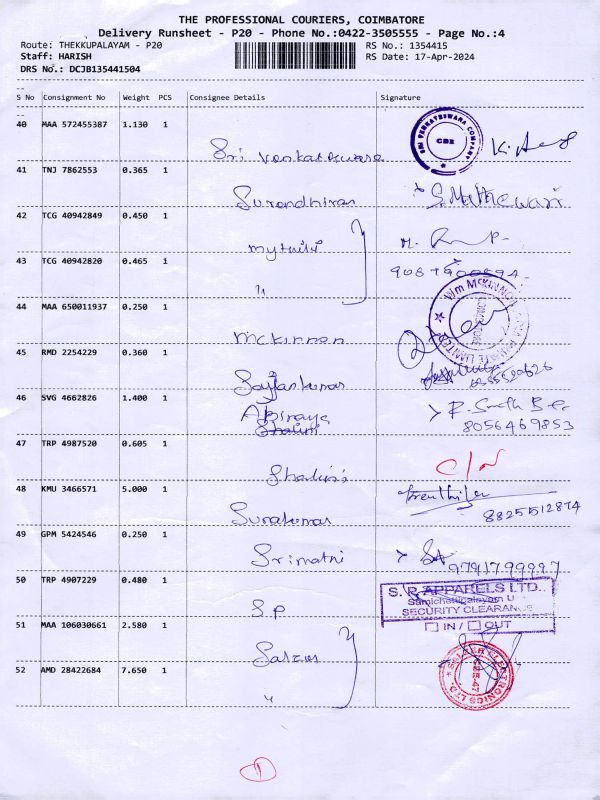 THE PROFESSIONAL COURIERS, COIMBATORE
Delivery Runsheet - P20 - Phone No.:0422-3505555 - Page No.:4
Route: THEKKUPALAYAM - P20 RS No.: 1354415
Staff: HARISH RS Date: 17-Apr-2024
DRS No.: DCJB135441504
S No Consignment No Weight PCS Consignee Details Signature
40 MAA 572455387 1.130 1
SRI VENKATESWARA COMPANY CBE
Sri Venkateswara
41 TNJ 7862553 0.365 1
Surendhiran
42 TCG 40942849 0.450 1
Mythili M.
43 TCG 40942820 0.465 1
"
44 MAA 650011937 0.250 1
Mckinnon
45 RMD 2254229 0.360 1
46 SVG 4662826 1.400 1
Abinaya
Shalini
8056469853
47 TRP 4987520 0.605 1
Shalini C/N
48 KMU 3466571 5.000 1
8825512874
49 GPM 5424546 0.250 1
Srimathi 9791799997
50 TRP 4907229 0.480 1
S.P
S.P. APPARELS LTD.,
Samichettipalayam U
SECURITY CLEARANCE
IN / OUT
51 MAA 106030661 2.580 1
52 AMD 28422684 7.650 1
"
1